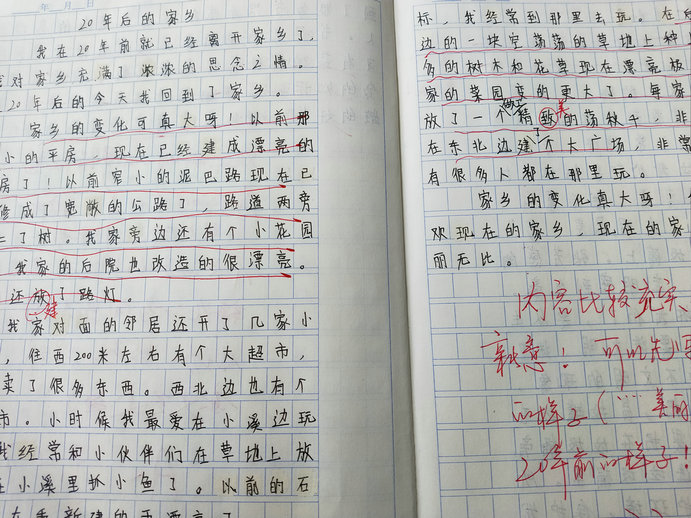 年 月 日
20年后的家乡
我在20年前就已经离开家乡了，
我对家乡充满了浓浓的思念之情。
20年后的今天我回到了家乡。
家乡的变化可真大呀！以前那
小的平房，现在已经建成漂亮的
房了！以前窄小的泥巴路现在已
修成了宽敞的公路了，路道两旁
上了树。我家旁边还有个小花园
我家的后院也改造的很漂亮。
还放了路灯。
我家对面的邻居还开了几家小
，往西200米左右有个大超市，
卖了很多东西。西北边也有个
市。小时候我最爱在小溪边玩
我经常和小伙伴们在草地上放
在小溪里抓小鱼了。以前的石
标，我经常到那里去玩。在
边的一块空荡荡的草地上种
多的树木和花草现在漂亮极
家的菜园变的更大了。每家
放了一个精致的荡秋千，非
在东北边建了个大广场，非常
有很多人都在那里玩。
家乡的变化真大呀！
欢现在的家乡，现在的家
丽无比。
内容比较充实
新意！可以先写
的样子（……美丽
20年前的样子！